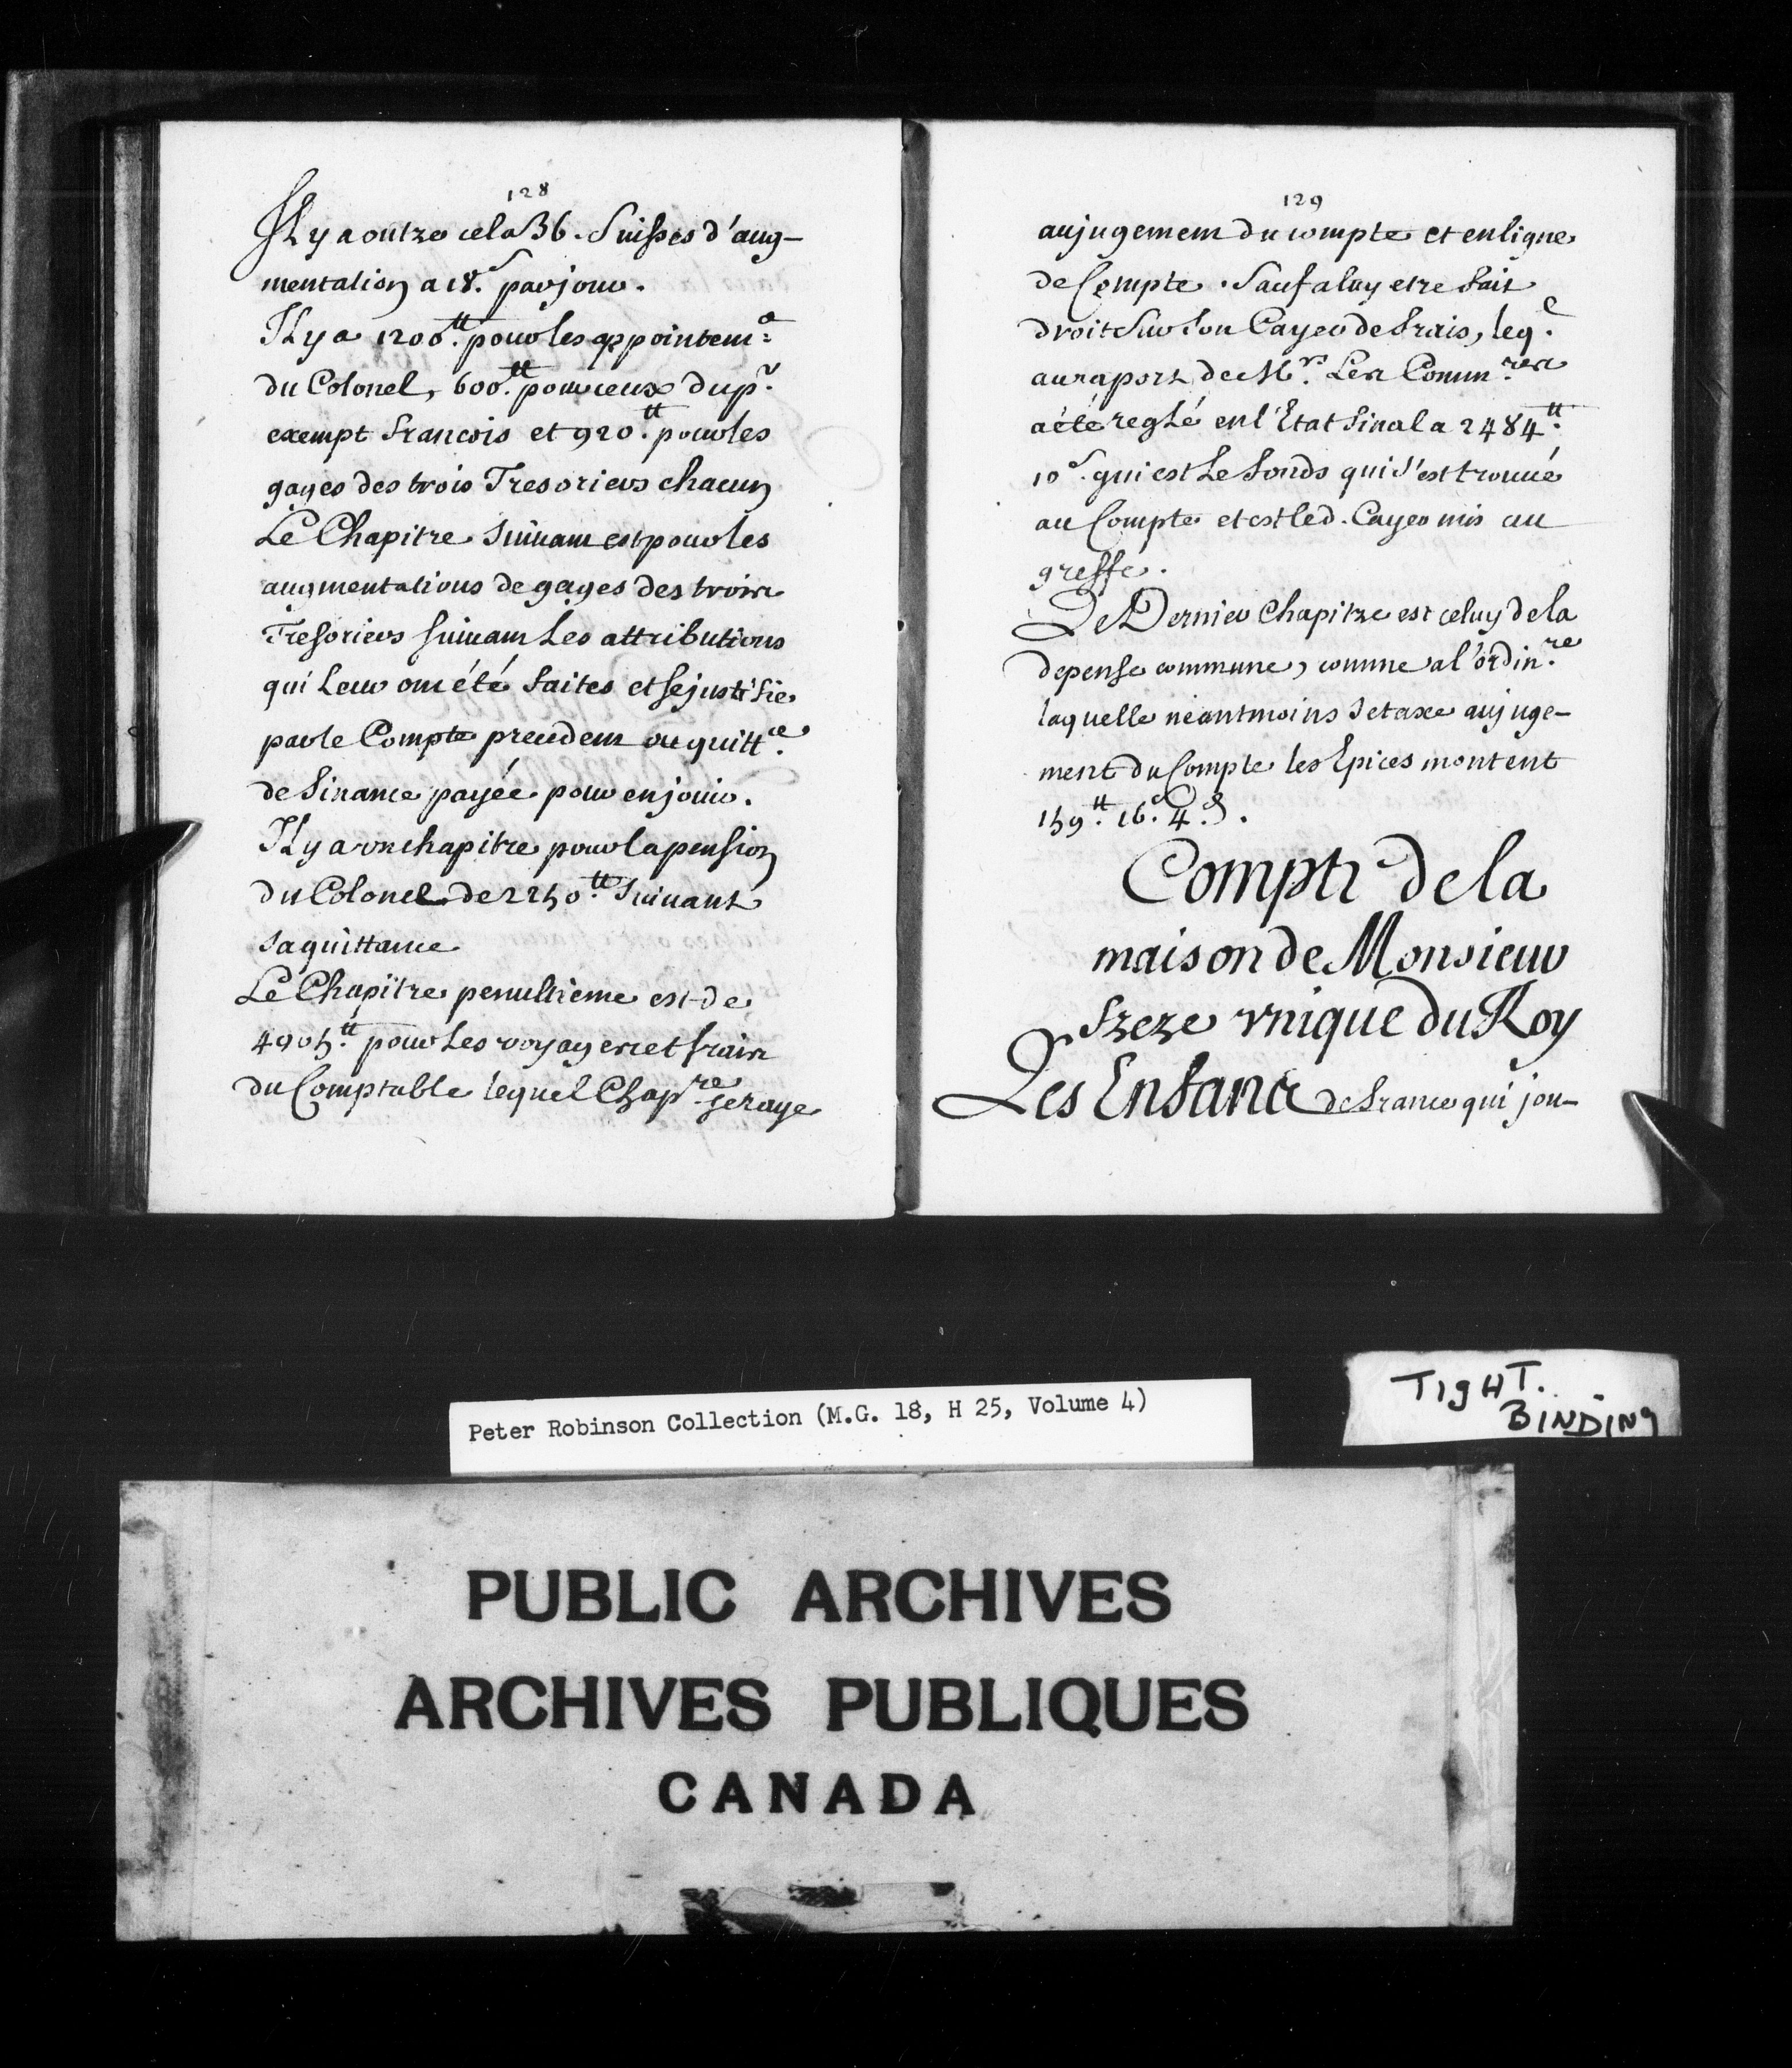 128
Il y a outre cela 36. Suisses d'aug-
mentation a 18.s par jour.
Il y a 1200.tt pour les appointem.s
du Colonel, 600.tt pour ceux du p.r
exempt francois et 920.tt pour les
gages des trois Tresoriers chacun
Le Chapitre suivant est pour les
augmentations de gages des trois
Tresoriers suivant Les attributions
qui Leur ont été faites et se justifie
par le Compte precedent ou quitt.ce
de finance payée pour en jouir.
Il y a vn chapitre pour la pension
du Colonel de 2250.tt suivant
sa quittance
Le Chapitre penultieme est de
4905.tt pour Les voyages et frais
du Comptable lequel Chap.re se raye
129
au jugement du compte et en ligne
de Compte. Sauf a luy etre fait
droit sur son Cayer de frais, leq.l
au raport de M.rs Les Comm.res
a été reglé en l'Etat final a 2484.tt
10.s qui est Le fonds qui s'est trouué
au Compte et est led. Cayer mis au
greffe.
Le Dernier Chapitre est celuy de la
depense commune, comme a l'ordin.re
laquelle neantmoins se taxe au juge-
ment du Compte les Epices montent
159.tt 16.s 4.d.
Compte de la
maison de Monsieur
frere vnique du Roy
Les Enfans de france qui jou-
Peter Robinson Collection (M.G. 18, H 25, Volume 4)
TIGHT.
BINDING
PUBLIC ARCHIVES
ARCHIVES PUBLIQUES
CANADA